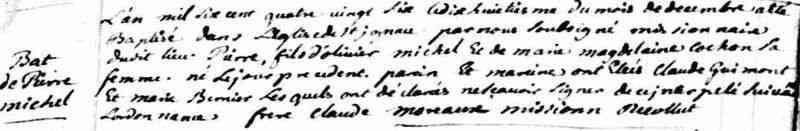 L'an mil six cent quatre vingt six le dixhuictiesme du mois de decembre a esté
Baptisé dans L'Eglise de St jgnace par nous soubsigné missionnaire
dudit lieu Pierre, fils d'olivier michel Et de marie magdelaine cochon sa
femme. né Le jour precedent. parin Et marine ont Etés Claude Guimont
Et marie Bernier Lesquels ont déclarés ne scavoir signer de ce interpelé suivant
Lordonnance, frere Claude moreaux missionn Recollet
Bat
de Pierre
michel